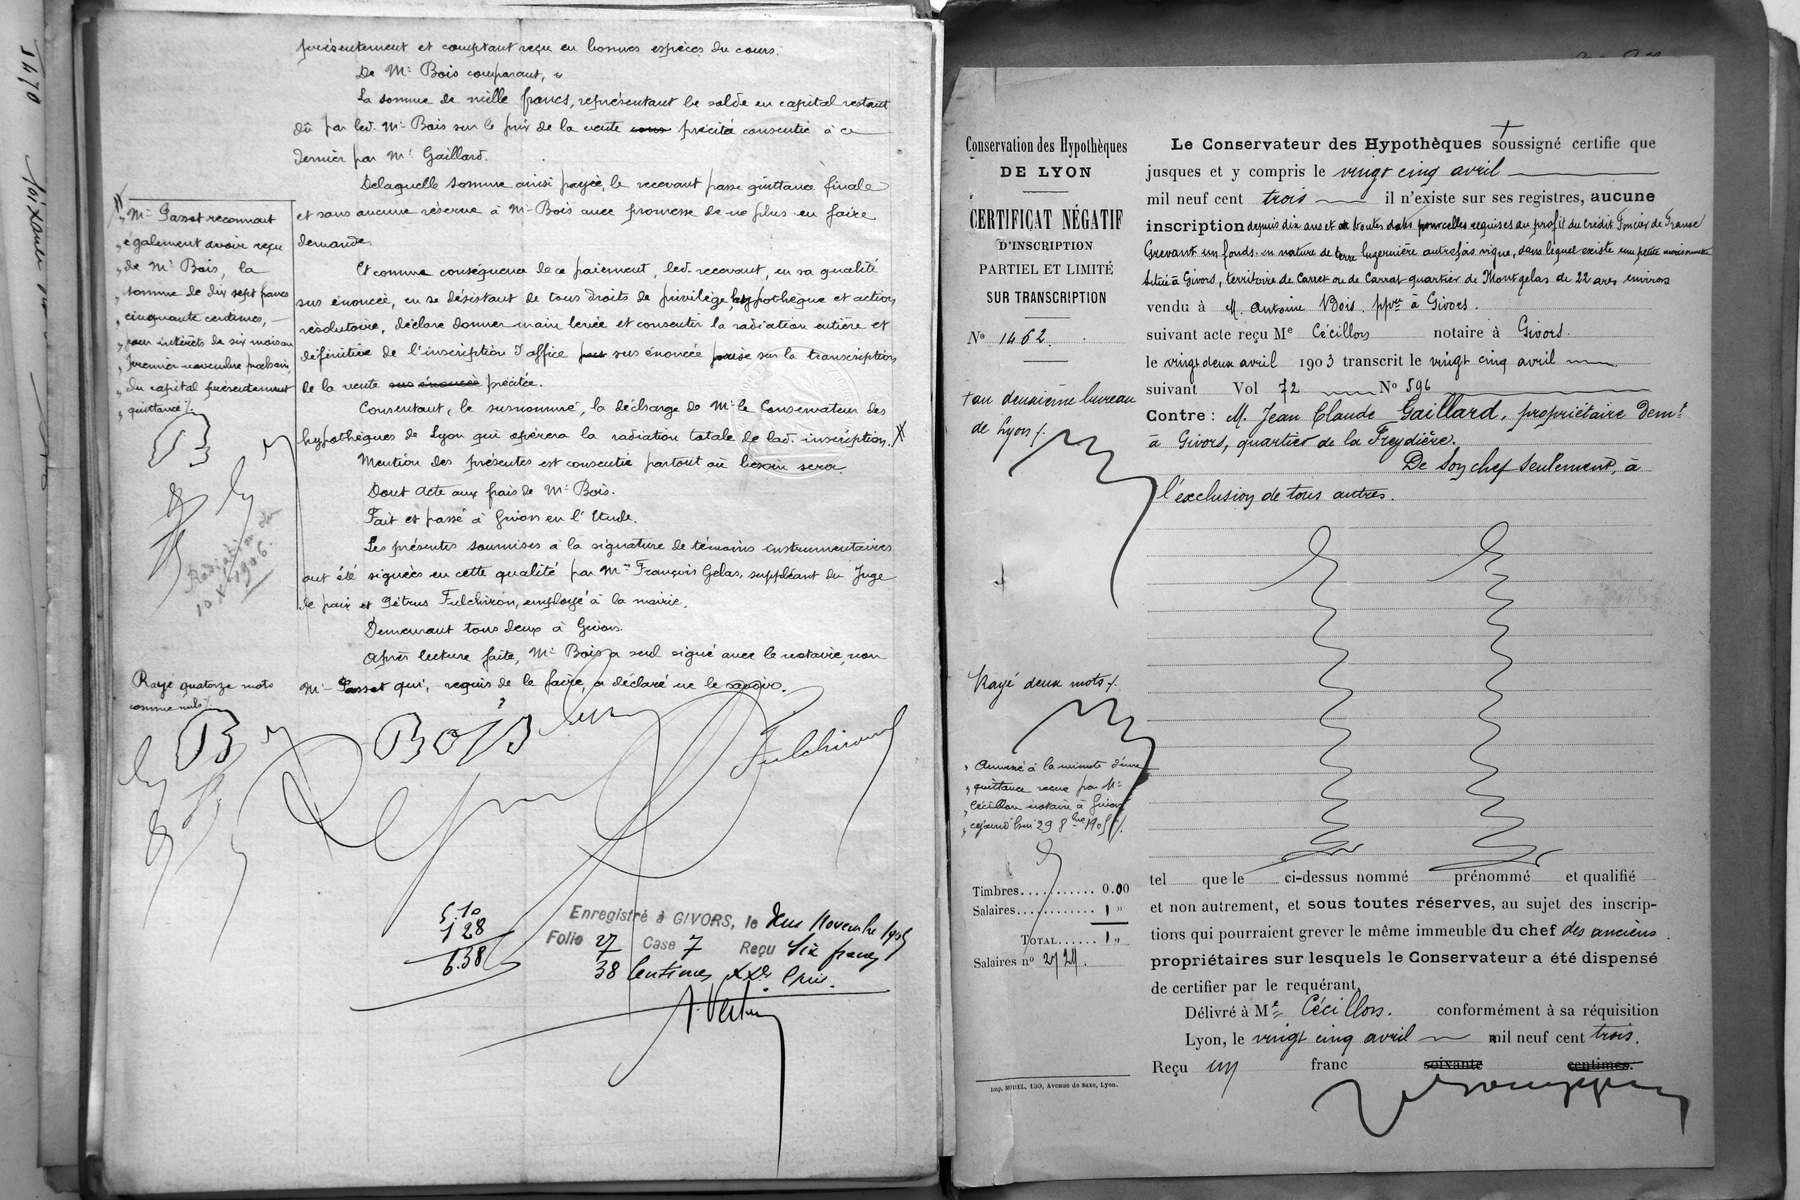 présentement et comptant reçu en bonnes espèces du cours.
De Mr Bois comparant,
La somme de mille francs, représentant le solde en capital restant
dû par led. Mr Bois sur le prix de la vente précitée consentie à ce
dernier par Mr Gaillard.
Delaquelle somme ainsi payée, le recevant passe quittance finale
et sans aucune réserve à Mr Bois avec promesse de ne plus en faire
demande.
Et comme conséquence de ce paiement, led. recevant, en sa qualité
sus énoncée, en se désistant de tous droits de privilège, hypothèque et action
résolutoire, déclare donner main levée et consentir la radiation entière et
définitive de l'inscription d'office sus énoncée prise sur la transcription
de la vente sus énoncée précitée.
Consentant, le susnommé, la décharge de Mr le Conservateur des
hypothèques de Lyon qui opérera la radiation totale de lad. inscription.
Mention des présentes est consentie partout où besoin sera.
Dont acte aux frais de Mr Bois.
Fait et passé à Givors en l'Etude.
Les présentes soumises à la signature de témoins instrumentaires
ont été signées en cette qualité par Mrs François Gelas, suppléant du Juge
de paix et Pétrus Fulchiron, employé à la mairie.
Demeurant tous deux à Givors.
Après lecture faite, Mr Bois a seul signé avec le notaire, non
Mr Passot qui, requis de le faire, a déclaré ne le savoir.
Mr Passot reconnait
également avoir reçu
de Mr Bois, la
somme de dix sept francs
cinquante centimes,
pour intérêts de six mois au
premier novembre prochain,
du capital présentement
quittancé
B
Radiation du
10 X 1906.
Rayé quatorze mots
comme nuls
B
BOIS
Fulchiron
5.10
1 28
6.38
Enregistré à GIVORS, le deux Novembre 1905
Folio 27 Case 7 Reçu six francs
38 Centimes
Conservation des Hypothèques
DE LYON
CERTIFICAT NÉGATIF
D'INSCRIPTION
PARTIEL ET LIMITÉ
SUR TRANSCRIPTION
No 1462.
+ au deuxième bureau
de Lyon
Rayé deux mots
Annexé à la minute d'une
quittance reçue par Me
Cécillon notaire à Givors
cejourd'hui 29 8bre 1905
Timbres........... 0.00
Salaires............ 1 "
TOTAL...... 1 "
Salaires no 2724.
Imp. MOREL, 130, Avenue de Saxe, Lyon.
Le Conservateur des Hypothèques + soussigné certifie que
jusques et y compris le vingt cinq avril
mil neuf cent trois il n'existe sur ses registres, aucune
inscription depuis dix ans et de toutes dates pour celles requises au profit du Crédit Foncier de France
Grevant un fonds en nature de terre luzernière autrefois vigne, dans lequel existe une petite maisonnette
Situé à Givors, territoire de Carret ou de Carrat quartier de Montgelas de 22 ares environ
vendu à M. Antoine Bois, ppre à Givors
suivant acte reçu Me Cécillon notaire à Givors.
le vingt deux avril 1903 transcrit le vingt cinq avril
suivant Vol 72 No 596
Contre : M. Jean Claude Gaillard, propriétaire demt
à Givors, quartier de la Freydière.
De son chef seulement, à
l'exclusion de tous autres.
tel que le ci-dessus nommé prénommé et qualifié
et non autrement, et sous toutes réserves, au sujet des inscrip-
tions qui pourraient grever le même immeuble du chef des anciens
propriétaires sur lesquels le Conservateur a été dispensé
de certifier par le requérant.
Délivré à Me Cécillon. conformément à sa réquisition
Lyon, le vingt cinq avril mil neuf cent trois.
Reçu un franc soixante centimes.